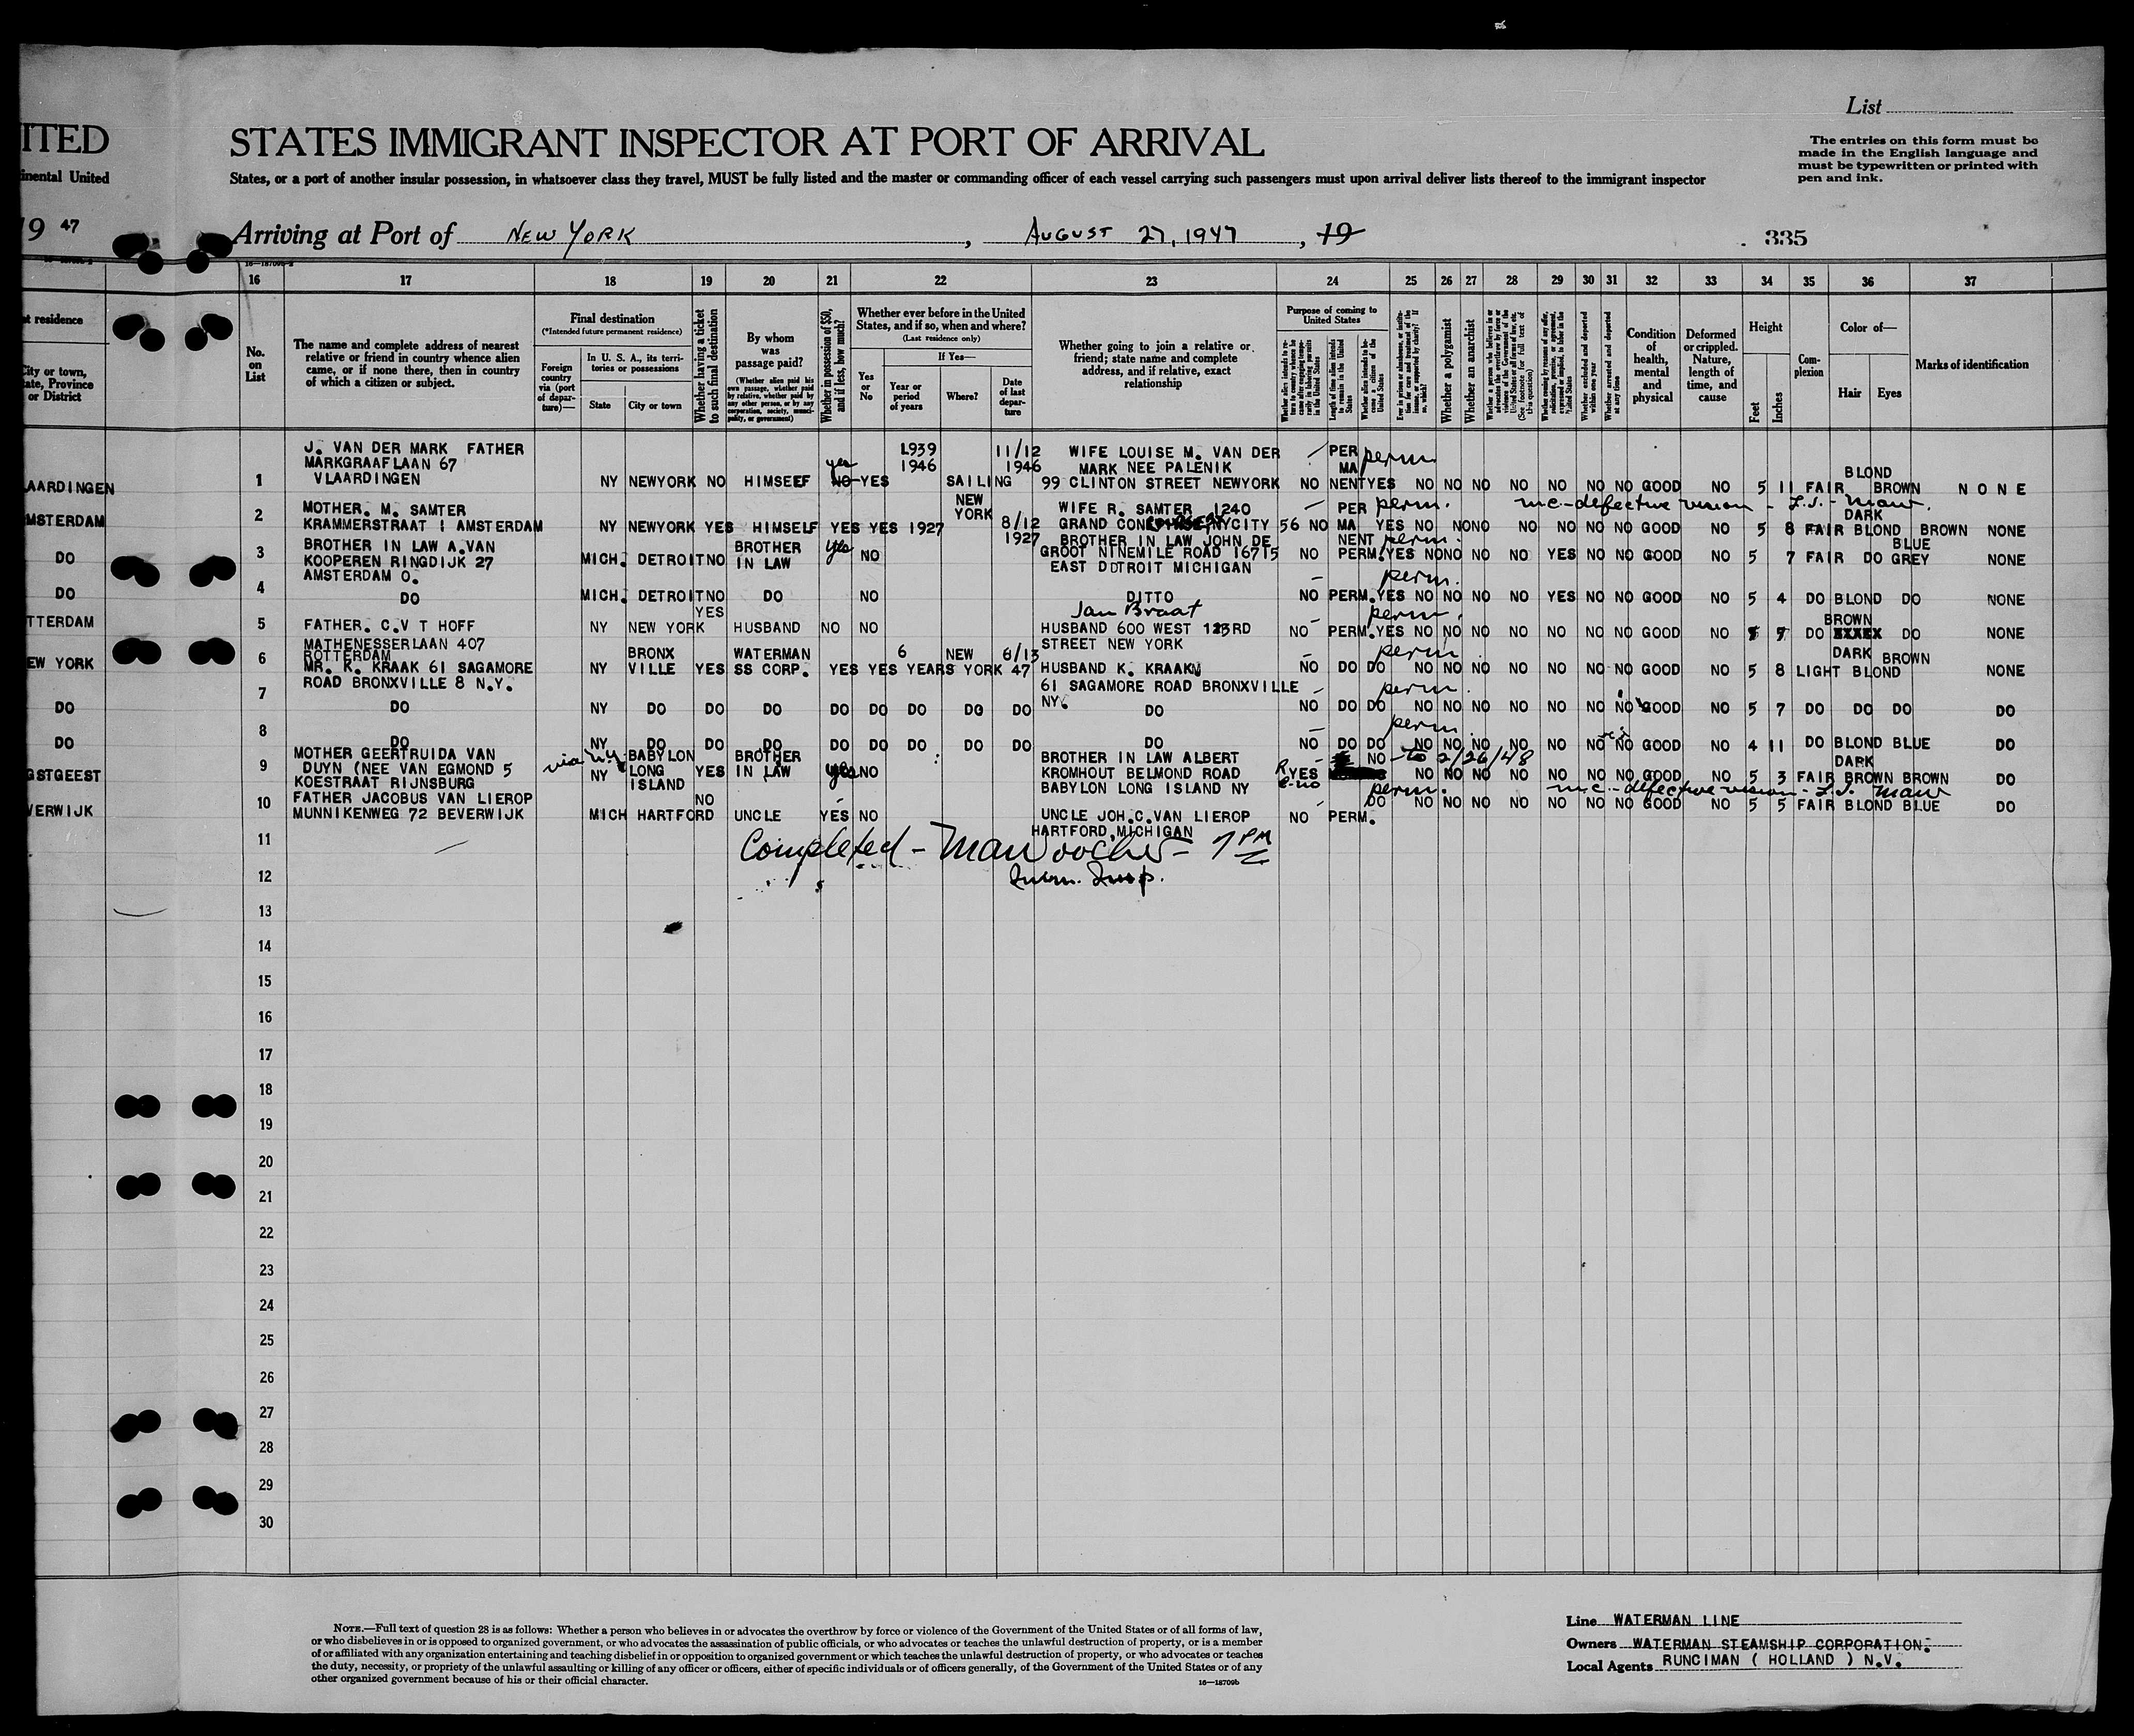 List
ITED STATES IMMIGRANT INSPECTOR AT PORT OF ARRIVAL
The entries on this form must be
made in the English language and
must be typewritten or printed with
pen and ink.
inental United States, or a port of another insular possession, in whatsoever class they travel, MUST be fully listed and the master or commanding officer of each vessel carrying such passengers must upon arrival deliver lists thereof to the immigrant inspector
19 47 Arriving at Port of NEW YORK, AUGUST 27, 1947, 19
335
16 17 18 19 20 21 22 23 24 25 26 27 28 29 30 31 32 33 34 35 36 37
t residence
City or town,
ate, Province
or District
No.
on
List
The name and complete address of nearest
relative or friend in country whence alien
came, or if none there, then in country
of which a citizen or subject.
Final destination
(*Intended future permanent residence)
Foreign
country
via (port
of depar-
ture)—
In U. S. A., its terri-
tories or possessions
State City or town
Whether having a ticket
to such final destination
By whom
was
passage paid?
(Whether alien paid his
own passage, whether paid
by relative, whether paid by
any other person, or by any
corporation, society, munici-
pality, or government)
Whether in possession of $50,
and if less, how much?
Whether ever before in the United
States, and if so, when and where?
(Last residence only)
Yes
or
No
If Yes—
Year or
period
of years
Where?
Date
of last
depar-
ture
Whether going to join a relative or
friend; state name and complete
address, and if relative, exact
relationship
Purpose of coming to
United States
Whether a polygamist
Whether an anarchist
Whether arrested and deported
at any time
Condition
of
health,
mental
and
physical
Deformed
or crippled.
Nature,
length of
time, and
cause
Height
Feet Inches
Com-
plexion
Color of—
Hair Eyes
Marks of identification
J. VAN DER MARK FATHER 1939 11/12 WIFE LOUISE M. VAN DER PER perm
MARKGRAAFLAAN 67 yes 1946 1946 MARK NEE PALENIK MA BLOND
AARDINGEN 1 VLAARDINGEN NY NEWYORK NO HIMSEEF NO YES SAILING 99 CLINTON STREET NEWYORK NO NENT YES NO NO NO NO NO NO NO GOOD NO 5 11 FAIR BROWN NONE
MOTHER. M. SAMTER NEW YORK WIFE R. SAMTER 1240 PER perm. mc-defective vision - L.I. - Maw. DARK
MSTERDAM 2 KRAMMERSTRAAT 1 AMSTERDAM NY NEWYORK YES HIMSELF YES YES 1927 8/12 1927 GRAND CON NYCITY 56 NO MA NENT YES NO NONO NO NO NO NO GOOD NO 5 8 FAIR BLOND BROWN NONE
BROTHER IN LAW A.VAN BROTHER yes BROTHER IN LAW JOHN DE perm. BLUE
DO 3 KOOPEREN RINGDIJK 27 MICH. DETROIT NO IN LAW NO GROOT NINEMILE ROAD 16715 NO PERM. YES NONO NO NO YES NO NO GOOD NO 5 7 FAIR DO GREY NONE
AMSTERDAM O. EAST DDTROIT MICHIGAN perm.
DO 4 DO MICH. DETROIT NO DO NO DITTO NO PERM. YES NO NO NO NO YES NO NO GOOD NO 5 4 DO BLOND DO NONE
YES Jan Braat perm. BROWN
TTERDAM 5 FATHER. C.V T HOFF NY NEW YORK HUSBAND NO NO HUSBAND 600 WEST 123RD NO PERM. YES NO NO NO NO NO NO NO GOOD NO 5 DO XXXXX DO NONE
MATHENESSERLAAN 407 STREET NEW YORK
ROTTERDAM BRONX WATERMAN 6 NEW 6/13 perm DARK BROWN
EW YORK 6 MR. K. KRAAK 61 SAGAMORE NY VILLE YES SS CORP. YES YES YEARS YORK 47 HUSBAND K. KRAAK NO DO DO NO NO NO NO NO NO NO GOOD NO 5 8 LIGHT BLOND NONE
ROAD BRONXVILLE 8 N.Y. 61 SAGAMORE ROAD BRONXVILLE NY. perm.
DO 7 DO NY DO DO DO DO DO DO DO DO DO NO DO DO NO NO NO NO NO NO NO GOOD NO 5 7 DO DO DO DO
perm.
DO 8 DO NY DO DO DO DO DO DO DO DO DO NO DO DO NO NO NO NO NO NO NO GOOD NO 4 11 DO BLOND BLUE DO
MOTHER GEERTRUIDA VAN via N.Y. BABYLON BROTHER BROTHER IN LAW ALBERT NO - to 2/26/48 DARK
GSTGEEST 9 DUYN (NEE VAN EGMOND 5 NY LONG YES IN LAW yes NO KROMHOUT BELMOND ROAD YES NO NO NO NO NO NO NO GOOD NO 5 3 FAIR BROWN BROWN DO
KOESTRAAT RIJNSBURG ISLAND BABYLON LONG ISLAND NY perm. mc-defective vision - L.I. Maw
FATHER JACOBUS VAN LIEROP NO
VERWIJK 10 MUNNIKENWEG 72 BEVERWIJK MICH HARTFORD UNCLE YES NO UNCLE JOH.C.VAN LIEROP NO PERM. DO NO NO NO NO NO NO NO GOOD NO 5 5 FAIR BLOND BLUE DO
HARTFORD,MICHIGAN
11 Completed - 7 PM
12 Imm. Insp.
13
14
15
16
17
18
19
20
21
22
23
24
25
26
27
28
29
30
NOTE.—Full text of question 28 is as follows: Whether a person who believes in or advocates the overthrow by force or violence of the Government of the United States or of all forms of law,
or who disbelieves in or is opposed to organized government, or who advocates the assassination of public officials, or who advocates or teaches the unlawful destruction of property, or is a member
of or affiliated with any organization entertaining and teaching disbelief in or opposition to organized government or which teaches the unlawful destruction of property, or who advocates or teaches
the duty, necessity, or propriety of the unlawful assaulting or killing of any officer or officers, either of specific individuals or of officers generally, of the Government of the United States or of any
other organized government because of his or their official character.
16—18709b
Line WATERMAN LINE
Owners WATERMAN STEAMSHIP CORPORATION.
Local Agents RUNCIMAN ( HOLLAND ) N.V.